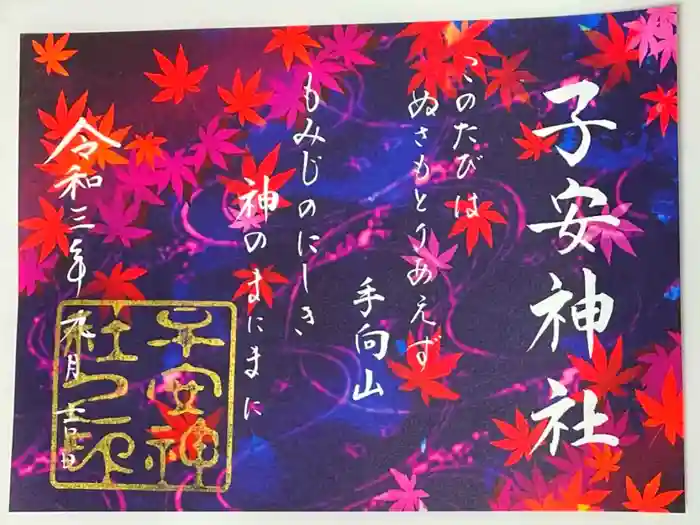 子安神社
このたびは
ぬさもとりあえず
手向山
もみじのにしき
神のまにまに
令和三年九月十三日
子安神
社之印